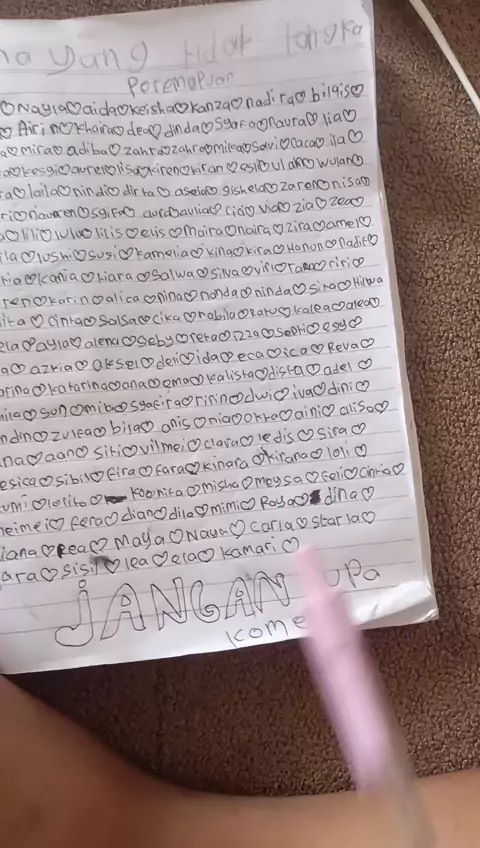 na yang tidak langka
Perempuan
♡Nayla♡aida♡keisha♡kanza♡nadira♡bilqis♡
♡Airin♡khaira♡dea♡dinda♡Syafa♡naura♡lia♡
a♡mira♡adiba♡zahra♡zahra♡mika♡savi♡caca♡ila♡
a♡kesya♡aurel♡lisa♡kiren♡kiran♡esli♡ulan♡wulan♡
ra♡laila♡nindi♡dirta♡asela♡gishela♡zaren♡nisa♡
ri♡nauren♡syifa♡aura♡aulia♡cici♡via♡zia♡zea♡
a♡lili♡lulu♡lilis♡elis♡maira♡naira♡zira♡amel♡
ila♡lushi♡susi♡kamelia♡kina♡kira♡Hanun♡nadif♡
kia♡kania♡kiara♡salwa♡silva♡vivi♡rara♡riri♡
ren♡karin♡alica♡nina♡nanda♡ninda♡sira♡Hilwa
ita♡cinta♡salsa♡cika♡nabila♡ratu♡kalea♡alea♡
ela♡ayla♡alena♡geby♡rera♡rza♡septi♡egy♡
a♡azkia♡aksel♡deli♡ida♡eca♡ica♡Reva♡
arina♡katarina♡ana♡ema♡kalista♡dista♡adel♡
hila♡sun♡mita♡syafira♡ririn♡dwi♡iva♡dini♡
ndin♡zulfa♡bila♡anis♡nia♡okta♡aini♡alisa♡
na♡aan♡siti♡vilmei♡clara♡ledis♡sira♡
esica♡sibil♡fira♡fara♡kinara♡kirana♡loli♡
umi♡lolita♡koonita♡misha♡meysa♡feli♡cintia♡
heimei♡fera♡dian♡dila♡mimi♡Raya♡dina♡
iana♡Rea♡Maya♡Naya♡carla♡starla♡
ara♡sisil♡lea♡ela♡kamari♡
JANGAN upa
kome